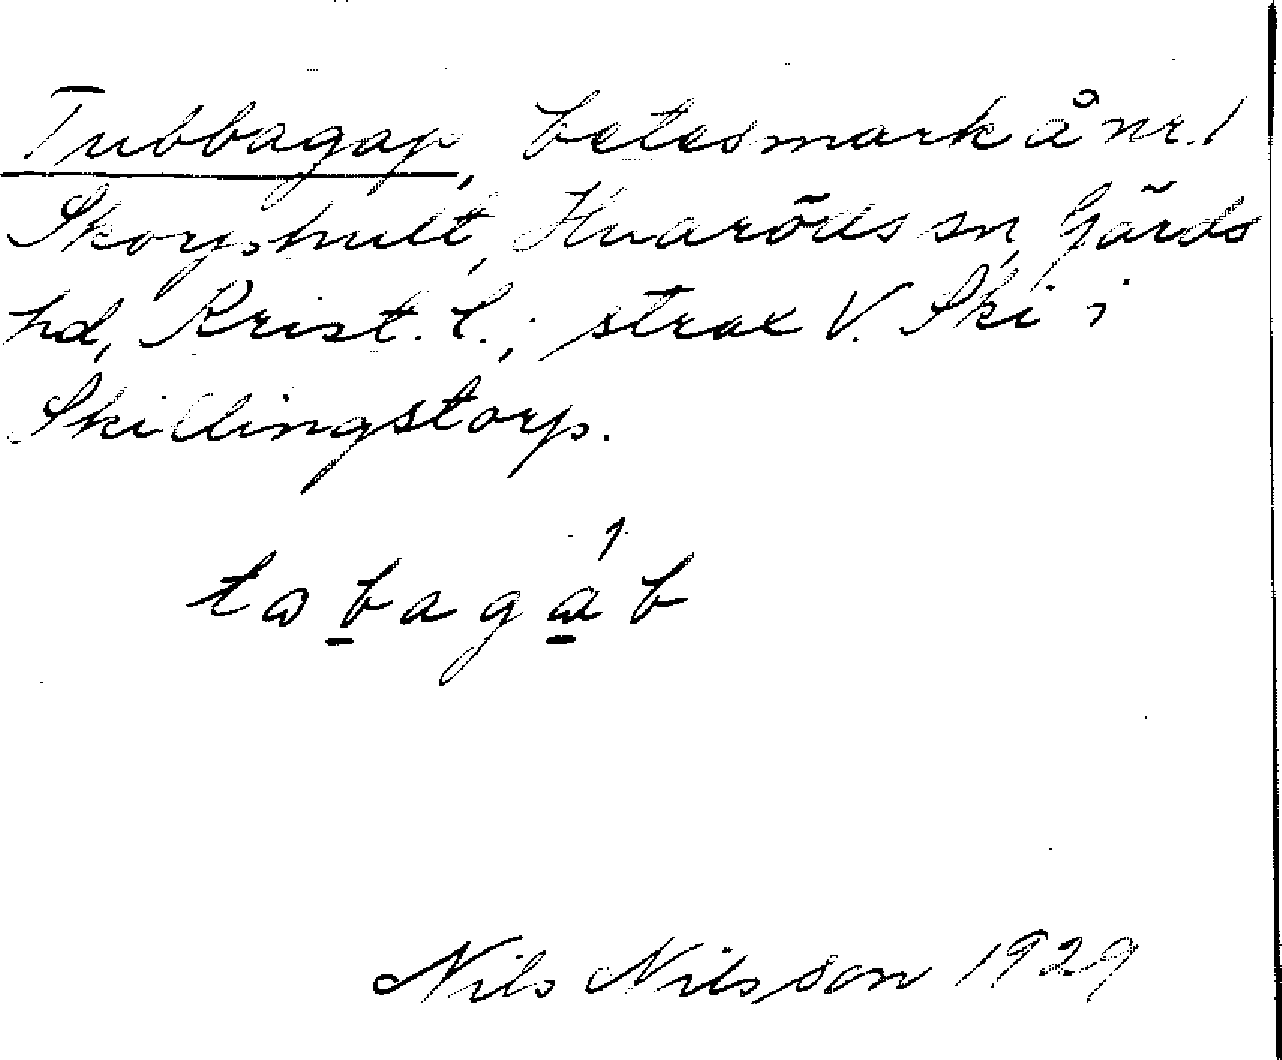 Tubbagap, betesmark å nr. 1
Skorpshult, Hvaröds sn, Gärds
hd, Krist. l.; strax V. Ski i
Skillingstorp.
tabagáb
Nils Nilsson 1929